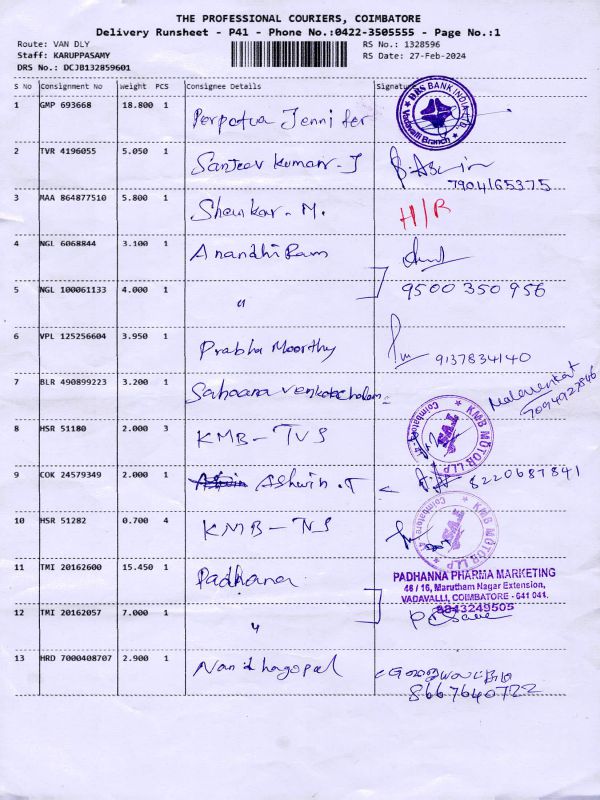 THE PROFESSIONAL COURIERS, COIMBATORE
Delivery Runsheet - P41 - Phone No.:0422-3505555 - Page No.:1
Route: VAN DLY
RS No.: 1328596
Staff: KARUPPASAMY
RS Date: 27-Feb-2024
DRS No.: DCJB132859601
S No Consignment No Weight PCS Consignee Details Signature
1 GMP 693668 18.800 1 Perpetua Jennifer
DBS BANK INDIA LTD.
Vadavalli Branch
2 TVR 4196055 5.050 1 Sanjeev Kumar - J B. Aswin
7904165375
3 MAA 864877510 5.800 1 Shankar - M. H/R
4 NGL 6068844 3.100 1 Anandhi Ram
5 NGL 100061133 4.000 1 " 9500350956
6 VPL 125256604 3.950 1 Prabha Moorthy 9137834140
7 BLR 490899223 3.200 1 Sahaana Venkatachalam
8 HSR 51180 2.000 3 KMB - TVS
KMB MOTOR LLP
Coimbatore
TVS
9 COK 24579349 2.000 1 Ashwin Ashwin . T 8220687841
10 HSR 51282 0.700 4 KMB - TVS
KMB MOTOR LLP
Coimbatore
11 TMI 20162600 15.450 1 Padhana
PADHANNA PHARMA MARKETING
46 / 16, Marutham Nagar Extension,
VADAVALLI, COIMBATORE - 641 041.
9843249505
12 TMI 20162057 7.000 1 "
13 HRD 7000408707 2.900 1 Nandhagopal
8667640722